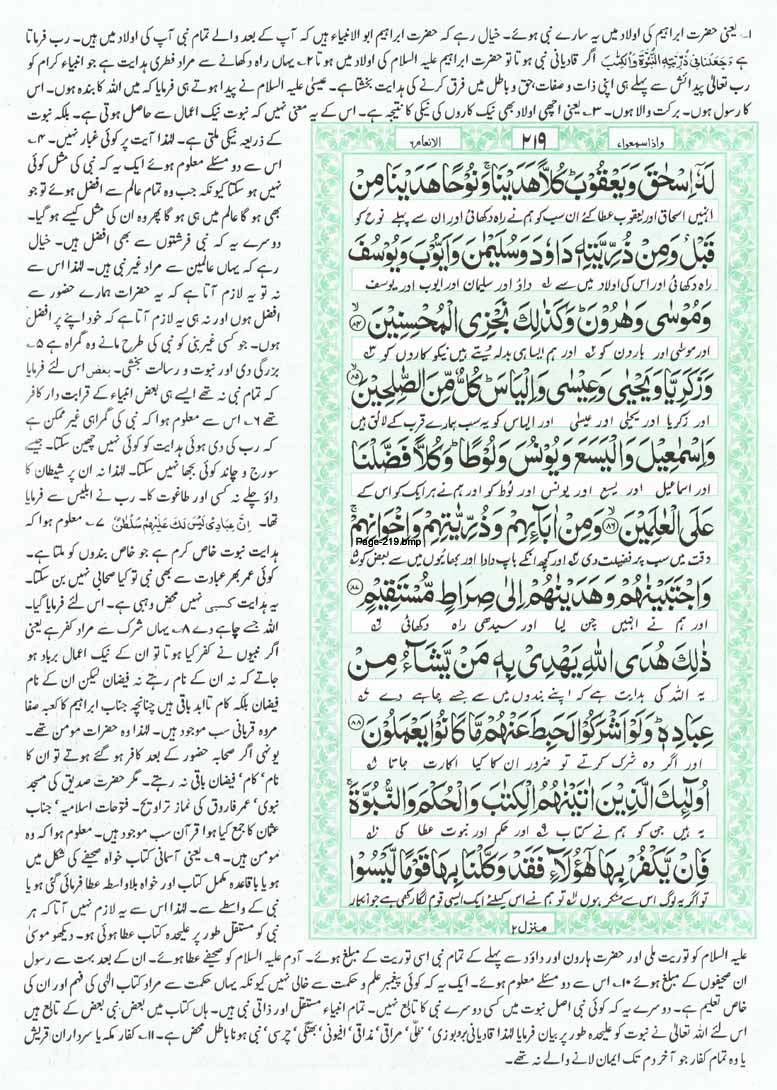 ۱؎ یعنی حضرت ابراہیم کی اولاد میں یہ سارے نبی ہوئے۔ خیال رہے کہ حضرت ابراہیم ابو الانبیاء ہیں کہ آپ کے بعد والے تمام نبی آپ کی اولاد میں ہیں۔ رب فرماتا
ہے وَجَعَلْنَا فِیْ ذُرِّیَّتِہِ النُّبُوَّۃَ وَالْکِتٰبَ اگر قادیانی نبی ہوتا تو حضرت ابراہیم علیہ السلام کی اولاد میں ہوتا ۲؎ یہاں راہ دکھانے سے مراد فطری ہدایت ہے جو انبیاء کرام کو
رب تعالیٰ پیدائش سے پہلے ہی اپنی ذات و صفات، حق و باطل میں فرق کرنے کی ہدایت بخشتا ہے۔ عیسیٰ علیہ السلام نے پیدا ہوتے ہی فرمایا کہ میں اللہ کا بندہ ہوں۔ اس
کا رسول ہوں۔ برکت والا ہوں۔ ۳؎ یعنی اچھی اولاد بھی نیک کاروں کی نیکی کا نتیجہ ہے۔ اس کے یہ معنی نہیں کہ نبوت نیک اعمال سے حاصل ہوتی ہے۔ بلکہ نبوت
کے ذریعہ نیکی ملتی ہے۔ لہٰذا آیت پر کوئی غبار نہیں۔ ۴؎
اس سے دو مسئلے معلوم ہوئے ایک یہ کہ نبی کی مثل کوئی
نہیں ہو سکتا کیونکہ جب وہ تمام عالم سے افضل ہوئے تو جو
بھی ہو گا عالم میں ہی ہو گا پھر وہ ان کی مثل کیسے ہو گیا۔
دوسرے یہ کہ نبی فرشتوں سے بھی افضل ہیں۔ خیال
رہے کہ یہاں عالمین سے مراد غیر نبی ہیں۔ لہٰذا اس سے
نہ تو یہ لازم آتا ہے کہ یہ حضرات ہمارے حضور سے
افضل ہوں اور نہ ہی یہ لازم آتا ہے کہ خود اپنے پر افضل
ہوں۔ جو کسی غیر نبی کو نبی کی طرح مانے وہ گمراہ ہے ۵؎
بزرگی دی اور نبوت و رسالت بخشی۔ بعض اس لئے فرمایا
کہ تمام نبی نہ تھے ایسے ہی بعض انبیاء کے قرابت دار کافر
تھے ۶؎ اس سے معلوم ہوا کہ نبی کی گمراہی غیر ممکن ہے
کہ رب کی دی ہوئی ہدایت کو کوئی نہیں چھین سکتا۔ جیسے
سورج و چاند کوئی بجھا نہیں سکتا۔ لہٰذا نہ ان پر شیطان کا
داؤ چلے نہ کسی اور طاغوت کا۔ رب نے ابلیس سے فرمایا
تھا۔ اِنَّ عِبَادِیْ لَیْسَ لَکَ عَلَیْہِمْ سُلْطٰنٌ ۷؎ معلوم ہوا کہ
ہدایت نبوت خاص کرم ہے جو خاص بندوں کو ملتا ہے۔
کوئی عمر بھر عبادت سے بھی نبی تو کیا صحابی نہیں بن سکتا۔
یہ ہدایت کسبی نہیں محض وہبی ہے۔ اس لئے فرمایا گیا۔
اللہ جسے چاہے دے ۸؎ یہاں شرک سے مراد کفر ہے یعنی
اگر نبیوں نے کفر کیا ہوتا تو ان کے نیک اعمال برباد ہو
جاتے کہ نہ ان کے نام رہتے نہ فیضان لیکن ان کے نام
فیضان بلکہ کام تا ابد باقی ہیں چنانچہ جناب ابراہیم کا کعبہ صفا
مروہ قربانی سب موجود ہیں۔ لہٰذا وہ حضرات مومن تھے۔
یونہی اگر صحابہ حضور کے بعد کافر ہو گئے ہوتے تو ان کا
نام، کام، فیضان باقی نہ رہتے۔ مگر حضرت صدیق کی مسجد
نبوی، عمر فاروق کی نماز تراویح۔ فتوحات اسلامیہ، جناب
عثمان کا جمع کیا ہوا قرآن سب موجود ہیں۔ معلوم ہوا کہ وہ
مومن ہیں۔ ۹؎ یعنی آسمانی کتاب خواہ صحیفے کی شکل میں
ہو یا باقاعدہ مکمل کتاب اور خواہ بلاواسطہ عطا فرمائی گئی ہو یا
نبی کے واسطے سے۔ لہٰذا اس سے یہ لازم نہیں آتا کہ ہر
نبی کو مستقل طور پر علیحدہ کتاب عطا ہوئی ہو۔ دیکھو موسیٰ
واذاسمعوا ۷
۲۱۹
الانعام ۶
لَهٗۤ اِسْحٰقَ وَ یَعْقُوْبَ ؕ كُلًّا هَدَیْنَا ۚ وَ نُوْحًا هَدَیْنَا مِنْ
انہیں اسحاق اور یعقوب عطا کئے ان سب کو ہم نے راہ دکھائی اور ان سے پہلے نوح کو
قَبْلُ وَ مِنْ ذُرِّیَّتِهٖ دَاوٗدَ وَ سُلَیْمٰنَ وَ اَیُّوْبَ وَ یُوْسُفَ
راہ دکھائی اور اس کی اولاد میں سے داؤد اور سلیمان اور ایوب اور یوسف
وَ مُوْسٰى وَ هٰرُوْنَ ؕ وَ كَذٰلِكَ نَجْزِی الْمُحْسِنِیْنَ ۙ﴿۸۴﴾
اور موسٰی اور ہارون کو اور ہم ایسا ہی بدلہ دیتے ہیں نیکو کاروں کو
وَ زَكَرِیَّا وَ یَحْیٰى وَ عِیْسٰى وَ اِلْیَاسَ ؕ كُلٌّ مِّنَ الصّٰلِحِیْنَ ۙ﴿۸۵﴾
اور زکریا اور یحیٰی اور عیسٰی اور الیاس کو یہ سب ہمارے قرب کے لائق ہیں
وَ اِسْمٰعِیْلَ وَ الْیَسَعَ وَ یُوْنُسَ وَ لُوْطًا ؕ وَ كُلًّا فَضَّلْنَا
اور اسماعیل اور یسع اور یونس اور لوط کو اور ہم نے ہر ایک کو اس کے
عَلَى الْعٰلَمِیْنَ ۙ﴿۸۶﴾ وَ مِنْ اٰبَآىٕهِمْ وَ ذُرِّیّٰتِهِمْ وَ اِخْوَانِهِمْ ۚ
Page-219.bmp
وقت میں سب پر فضیلت دی اور کچھ انکے باپ دادا اور اولاد اور بھائیوں میں سے بعض کو
وَ اجْتَبَیْنٰهُمْ وَ هَدَیْنٰهُمْ اِلٰى صِرَاطٍ مُّسْتَقِیْمٍ ﴿۸۷﴾
اور ہم نے انہیں چن لیا اور سیدھی راہ دکھائی
ذٰلِكَ هُدَى اللّٰهِ یَهْدِیْ بِهٖ مَنْ یَّشَآءُ مِنْ
یہ اللہ کی ہدایت ہے کہ اپنے بندوں میں سے جسے چاہے دے
عِبَادِهٖ ؕ وَ لَوْ اَشْرَكُوْا لَحَبِطَ عَنْهُمْ مَّا كَانُوْا یَعْمَلُوْنَ ﴿۸۸﴾
اور اگر وہ شرک کرتے تو ضرور ان کا کیا اکارت جاتا
اُولٰٓىٕكَ الَّذِیْنَ اٰتَیْنٰهُمُ الْكِتٰبَ وَ الْحُكْمَ وَ النُّبُوَّةَ ۚ
یہ ہیں جن کو ہم نے کتاب اور حکم اور نبوت عطا کی
فَاِنْ یَّكْفُرْ بِهَا هٰۤؤُلَآءِ فَقَدْ وَكَّلْنَا بِهَا قَوْمًا لَّیْسُوْا
تو اگر یہ لوگ اس سے منکر ہوں تو ہم نے اس کیلئے ایک ایسی قوم لگا رکھی ہے جو انکار
منزل ۲
علیہ السلام کو توریت ملی اور حضرت ہارون اور داؤد سے پہلے کے تمام نبی اسی توریت کے مبلغ ہوئے۔ آدم علیہ السلام کو صحیفے عطا ہوئے۔ ان کے بعد بہت سے رسول
ان صحیفوں کے مبلغ ہوئے ۱۰؎ اس سے دو مسئلے معلوم ہوئے۔ ایک یہ کہ کوئی پیغمبر علم و حکمت سے خالی نہیں کیونکہ یہاں حکمت سے مراد کتاب الٰہی کی فہم اور ان کی
خاص تعلیم ہے۔ دوسرے یہ کہ کوئی نبی اصل نبوت میں کسی دوسرے نبی کا تابع نہیں۔ تمام انبیاء مستقل اور ذاتی نبی ہیں۔ ہاں کتاب میں بعض نبی بعض کے تابع ہیں
اس لئے اللہ تعالیٰ نے نبوت کو علیحدہ طور پر بیان فرمایا لہٰذا قادیانی بروبوزی، ظلّی، مراقی، مذاقی، افیونی، بھنگی، چرسی، نبی ہونا باطل محض ہے۔ ۱۱؎ کفار مکہ یا سرداران قریش
یا وہ تمام کفار جو آخر دم تک ایمان لانے والے نہ تھے۔